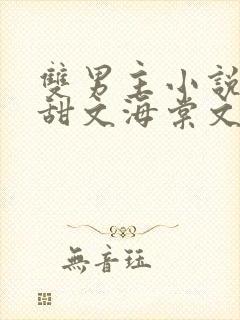 雙男主小說
甜文海棠文
無音珏